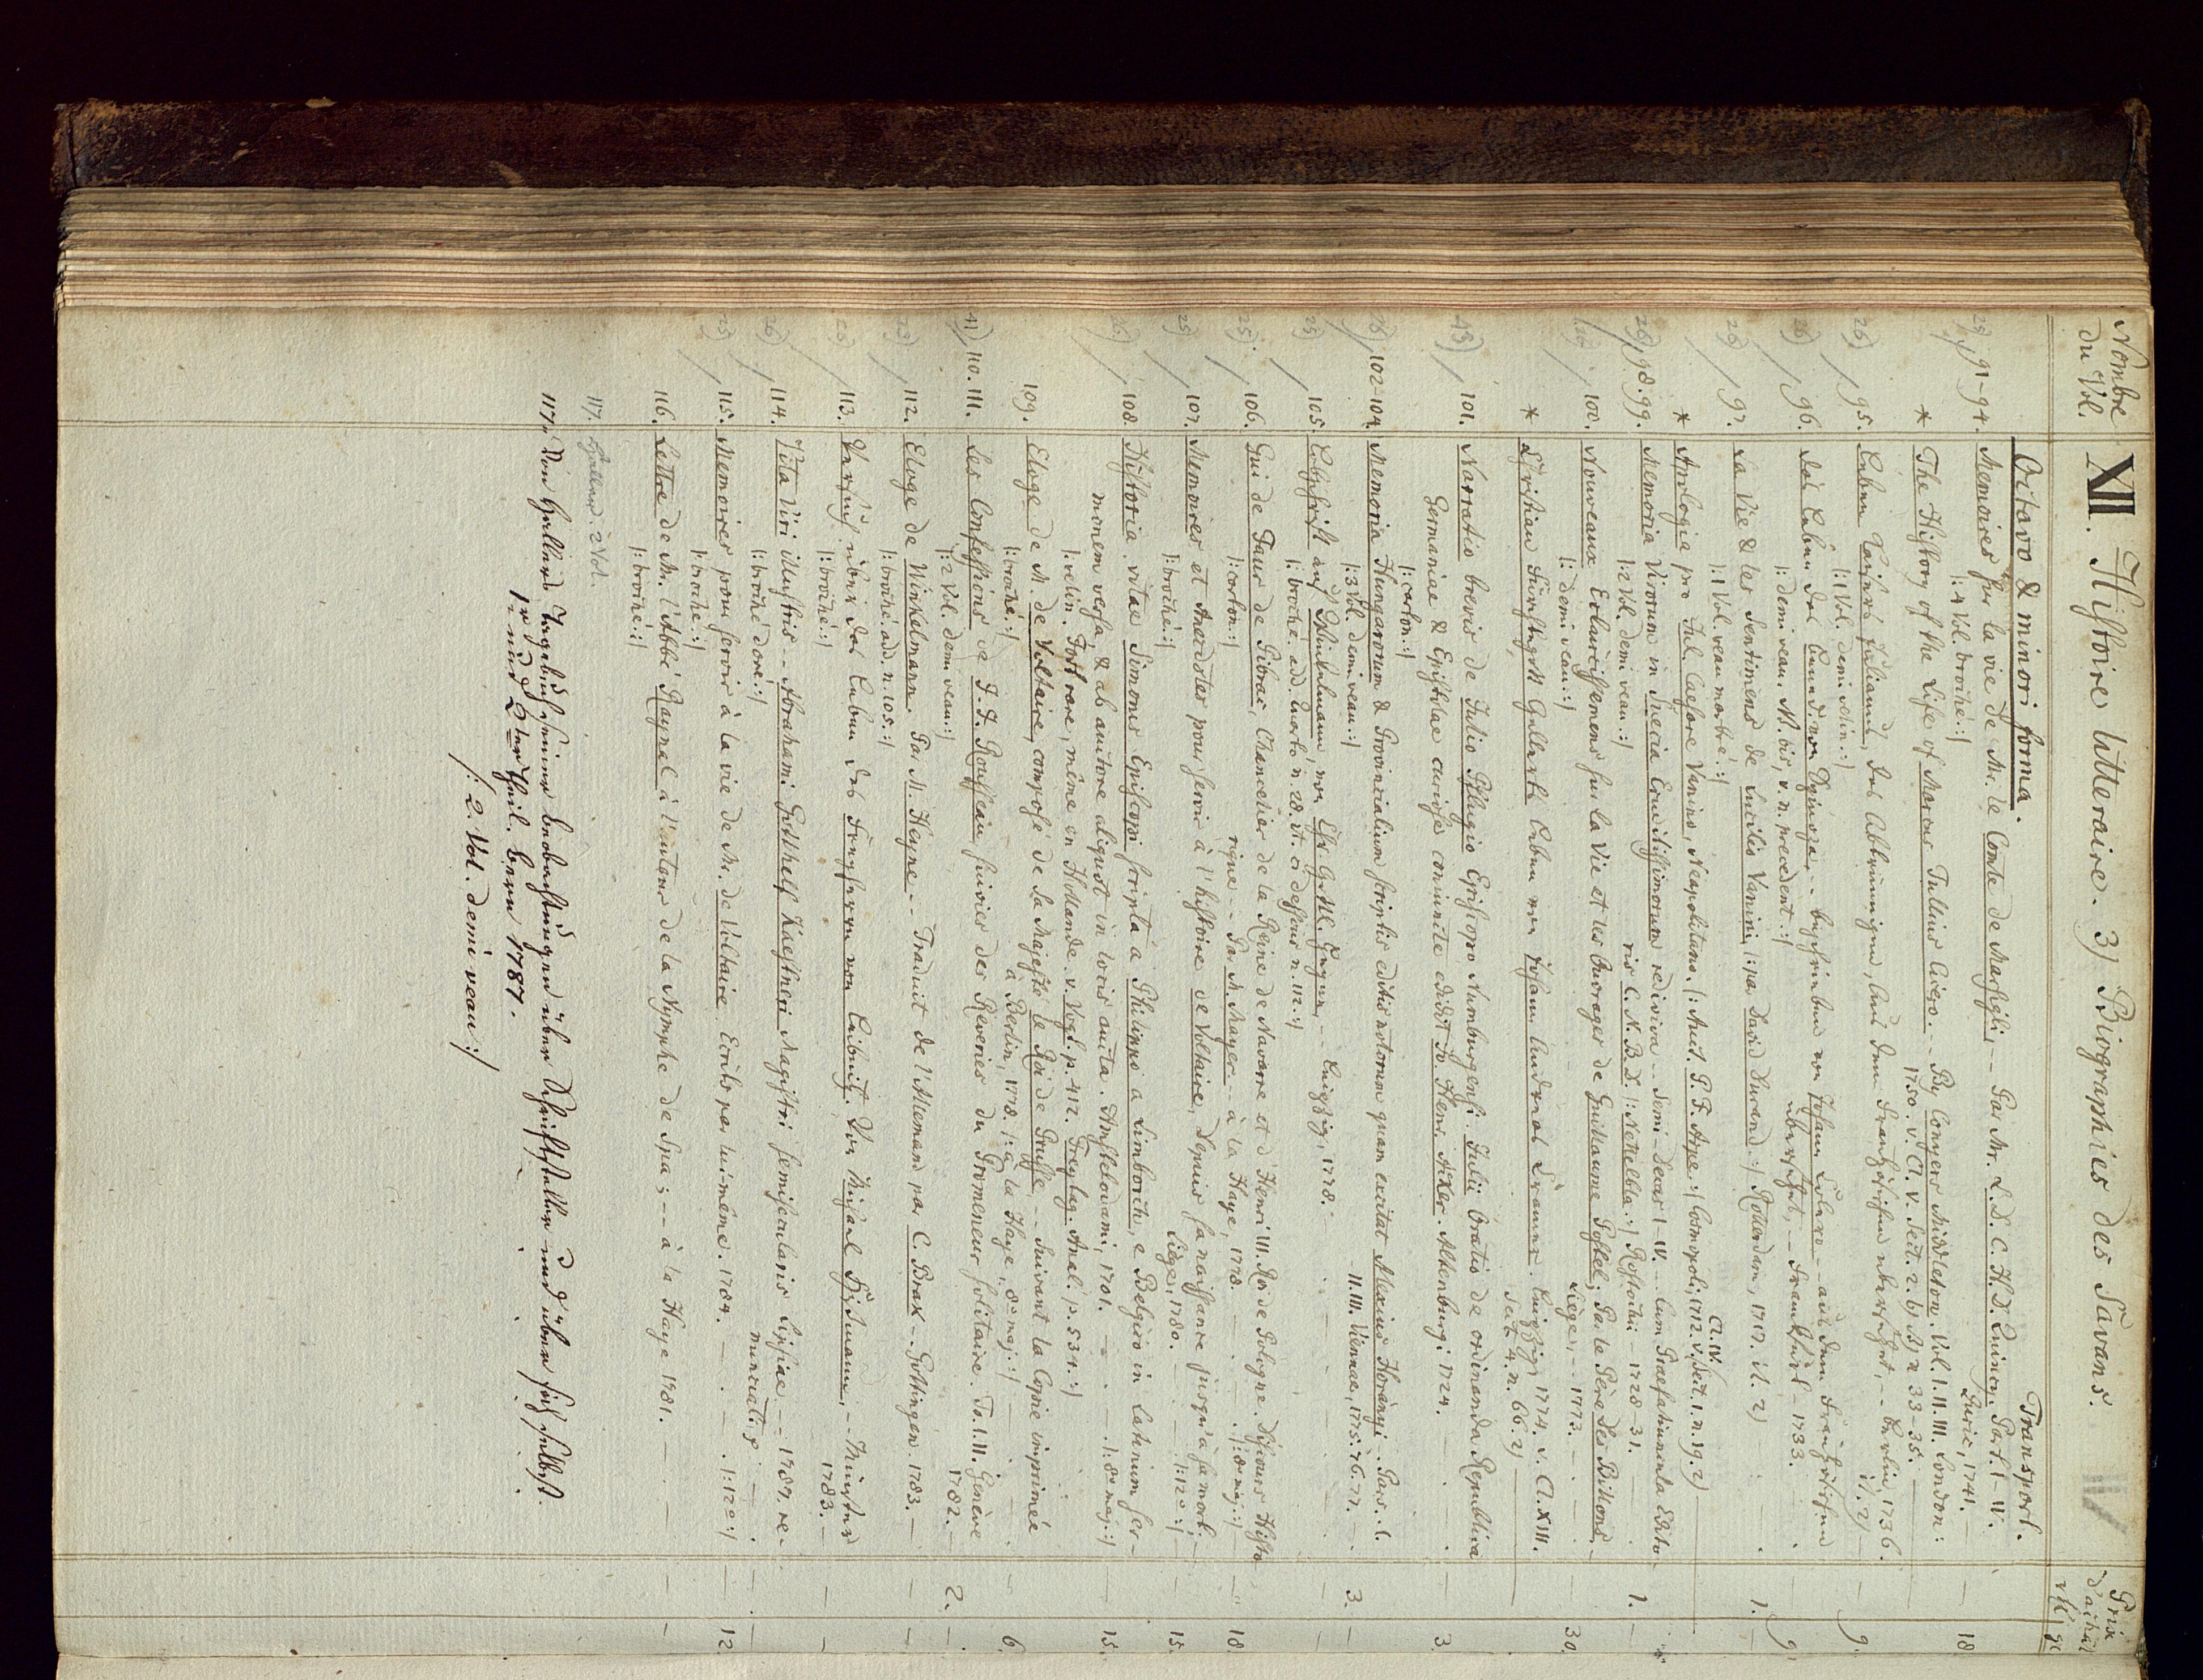 Nombre du Vol.
XII. Histoire litteraire. 3) Biographies des Savans.
Prix d'achat
Octavo & minori forma.
Transport.
25) 91-94. Memoires sur la vie de Mr. le Comte de Marsigli, -- Par Mr. L. D. C. H. D. Quincy. Part. I-IV.
|: 4 Vol. broché :| Zuric, 1741. — 18
* The History of the Life of Marcus Tullius Cicero. -- By Conyers Middleton. Vol. I. II. III. London:
1750. v. Cl. V. Sect. 2. b) B) n 33-35. —
25) 95. Leben Kaisers Julians, des Abtrünnigen, Aus dem Französischen übersetzt, -- Berlin, 1736.
|: 1 Vol. demi velin :| it. 2) — 9.
26) 96. Das Leben des Bened. von Spinoza, -- beschrieben von Johann Colero -- aus dem Französischen
|: demi veau. NB. bis, v. n. precedent :| übersetzt, -- Frankfurt -- 1733. — 9
26) 97. La Vie & les Sentimens de Lucilio Vanini |: par David Durand :| Rotterdam, 1717. it. 2)
|: 1 Vol. veau marbré :| 1. —
* Apologia pro Jul. Caesare Vanino, Neapolitano. |: Auct. P. F. Arpe :| Cosmopoli, 1712. v. Sect. 1. n. 19. 2)
Cl. IV.
26) 98. 99. Memoria Virorum in Suecia Eruditissimorum rediviva -- Semi-Decas I-IV. -- Cum Praefatiuncula Edito-
|: 2 Vol. demi veau :| ris C. N. B. D. |: Nettelbla :| Rostochii -- 1728-31. — 1. —
26) 100. Nouveaux Eclaircissemens sur la Vie et les Ouvrages de Guillaume Postel; Par le Père Des Billons,
|: demi veau :| Liège, -- 1773. — 30.
* Christian Fürchtegott Gellerts Leben von Johann Andreas Cramer. Leipzig, 1774. v. Cl. XIII.
Sect. 4. n. 66. 2) —
43) 101. Narratio brevis de Julio Pflugio Episcopo Numburgensi. Julii Oratio de ordinanda Republica
Germaniae & Epistolae curiosae coniuncte edidit Jo. Henr. Acker. Altenburgi 1724. — 3.
|: carton :|
26) 102-104. Memoria Hungarorum & Provincialium scriptis editis notorum quam excitat Alexius Horányi. -- Pars. I.
|: 3 Vol. demi veau :| II. III. Viennae, 1775. 76. 77. — 3. —
25) 105. Lobschrift auf Winkelmann von Chr. Gottl. Heyne, -- Leipzig, 1778. —
|: broché. add. Quarto n. 28. it. ci dessus n. 112. :|
25) 106. Gui de Faur de Pibrac, Chancelier de la Reine de Navarre et d'Henri III. Roi de Pologne. Discours Histo-
|: carton :| rique -- Par M. Mayer -- à la Haye, 1778. — |: 8º maj. :| — 18.
25) 107. Memoires et Anecdotes pour servir à l'histoire de Voltaire, Depuis sa naissance jusqu'à sa mort. —
|: broché :| Liège, 1780. — |: 12º :| — 15.
26) 108. Historia vitae Simonis Episcopii scripta a Philippo a Limborch, e Belgico in Latinum Ser-
monem versa, & ab auctore aliquot in locis aucta. Amstelodami, 1701. — |: 8º maj. :| — 15.
|: velin. Fort rare, même en Hollande. v. Vogt. p. 412. Freytag. Anal. p. 534. :|
109. Eloge de M. de Voltaire, composé de Sa Majesté le Roi de Prusse, -- Suivant la Copie imprimée
|: broché :| à Berlin, 1778. |: à la Haye, 8º maj. :| — 6.
41) 110. 111. Les Confessions de J. J. Rousseau suivies des Rêveries du Promeneur Solitaire. To. I. II. Genève
|: 2 Vol. demi veau :| 1782. — 2.
23) 112. Eloge de Winkelmann. Par M. Heyne -- Traduit de l'Allemand par C. Brax -- Gottingen. 1783. —
|: broché. add. n. 105. :|
26) 113. Versuch über das Leben des Freyherrn von Leibnitz. Von Michael Hißmann, -- Münster
|: broché :| 1783. —
26) 114. Vita viri illustris -- Abrahami Gotthelf Kaestneri Magistri semisecularis Lipsiae -- 1787. re-
|: broché doré :| nunciati. —
25) 115. Memoires pour servir à la vie de Mr. de Voltaire. Ecrits par lui-même. 1784. — |: 12º :| — 12.
|: broché :|
116. Lettre de Mr. l'Abbé Raynal à l'auteur de la Nymphe de Spa; -- à la Haye 1781. —
|: broché :|
117. Hallers. 2 Vol.
117. Von Hallers Tagebuch seiner Beobachtungen über Schriftsteller und über sich selbst.
1r und 2ter Theil. Bern 1787.
|: 2. Vol. demi veau :|